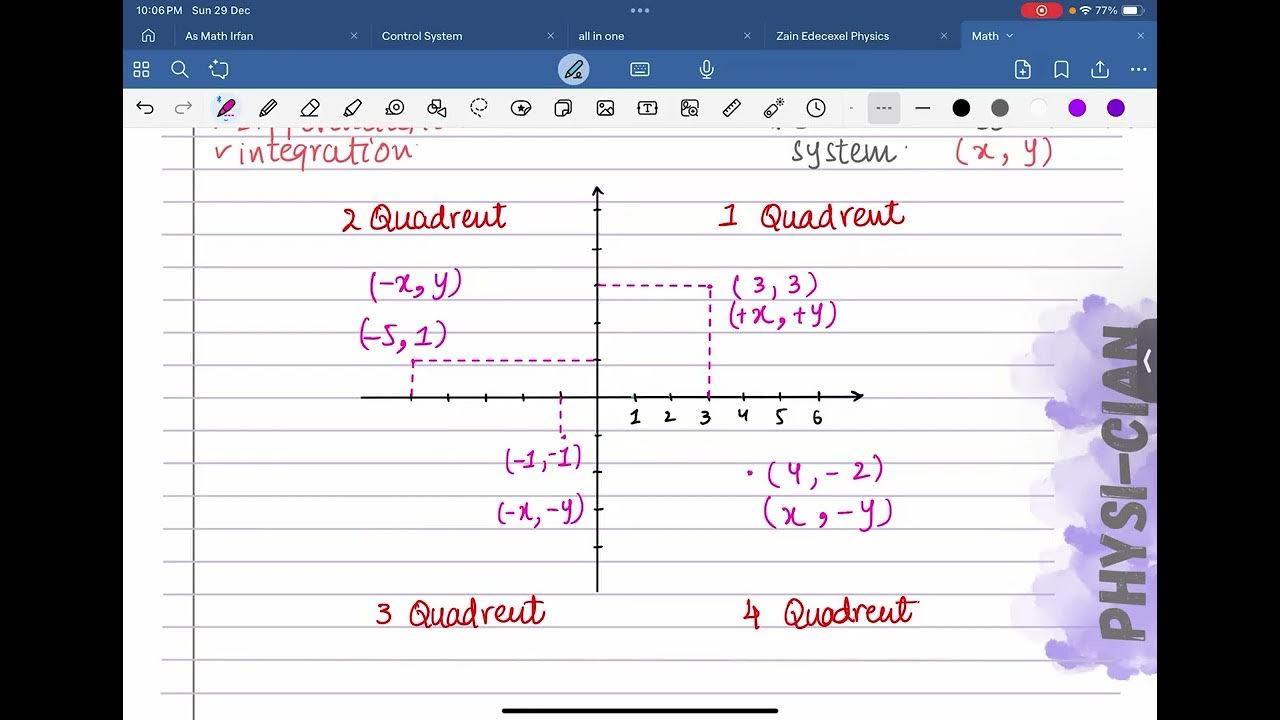 10:06 PM Sun 29 Dec
77%
As Math Irfan
Control System
all in one
Zain Edecexel Physics
Math
integration
system (x, y)
2 Quadrent
1 Quadrent
(-x, y)
(3, 3)
(+x, +y)
(-5, 1)
1 2 3 4 5 6
(-1, -1)
(4, -2)
(-x, -y)
(x, -y)
3 Quadrent
4 Quadrent
PHYSI-CIAN